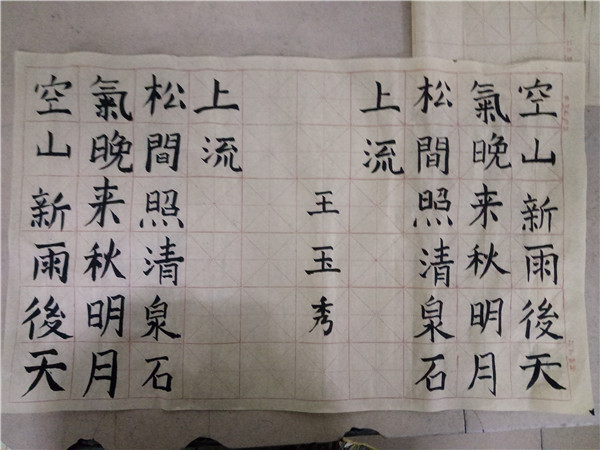 空山新雨後天
氣晚来秋明月
松間照清泉石
上流
王玉秀
上流
松間照清泉石
氣晚来秋明月
空山新雨後天